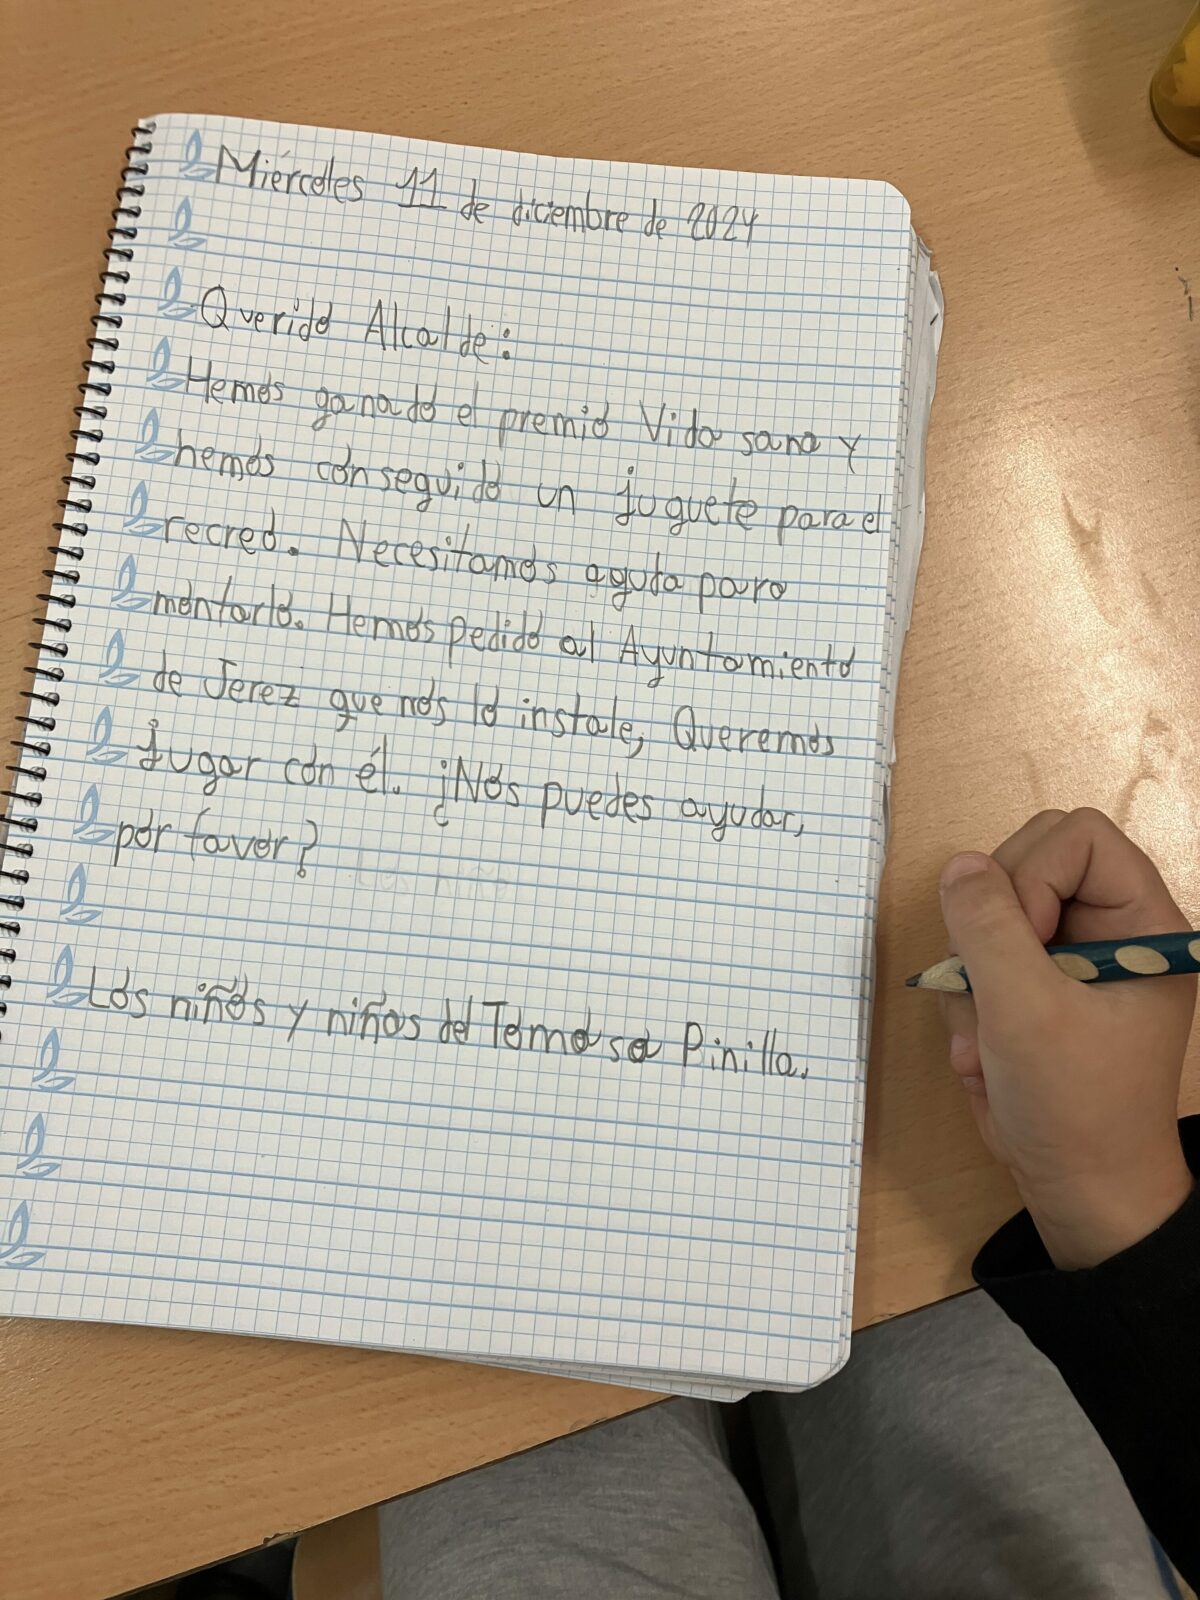 Miércoles 11 de diciembre de 2024
Querido Alcalde:
Hemos ganado el premio Vida sana y
hemos conseguido un juguete para el
recreo. Necesitamos aguda para
montarlo. Hemos pedido al Ayuntamiento
de Jerez que nos lo instale, Queremos
jugar con él. ¿Nos puedes ayudar,
por favor?
Los niño
Los niños y niñas del Tomasa Pinilla.